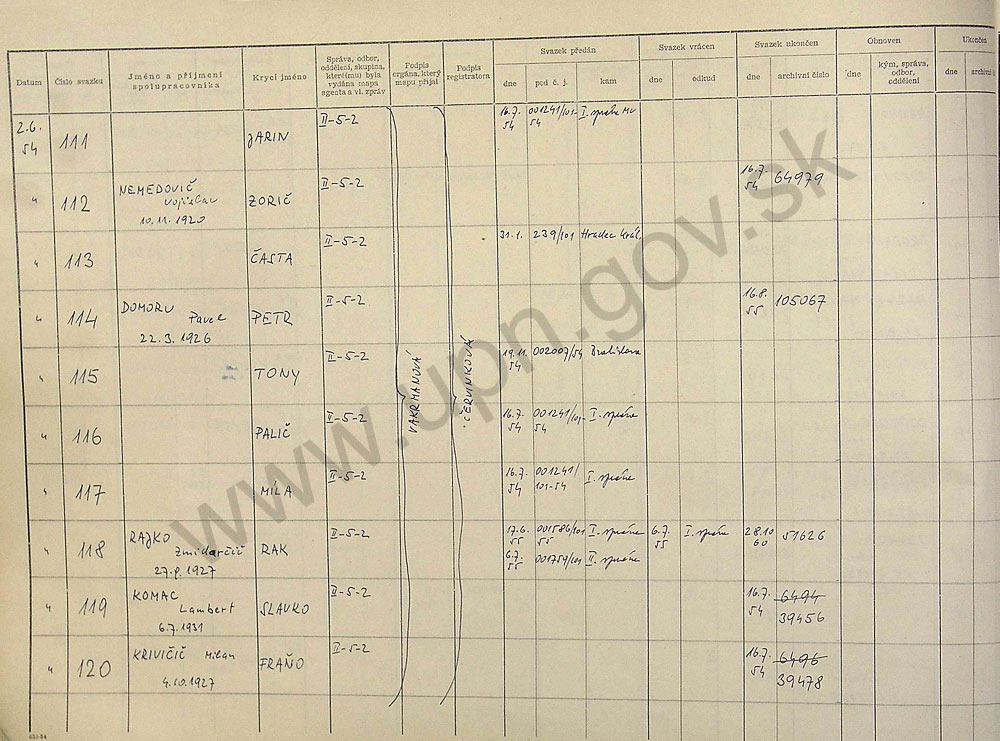 Datum
Číslo svazku
Jméno a příjmení
spolupracovníka
Krycí jméno
Správa, odbor,
oddělení, skupina,
které(mu) byla
vydána mapa
agenta a vl. zpráv
Podpis
orgána, který
mapu přijal
Podpis
registratora
Svazek předán
dne
pod č. j.
kam
Svazek vrácen
dne
odkud
Svazek ukončen
dne
archivní číslo
Obnoven
dne
kým, správa,
odbor,
oddělení
Ukončen
dne
archivní
2.6.
54
111
JARIN
II-5-2
16.7.
54
001241/101-
54
I. správa MV
" 112
NEMEDOVIČ
Vojislav
10.11.1920
ZORIČ
II-5-2
16.7.
54
64979
" 113
ČASTA
II-5-2
31.1.
239/101
Hradec Král.
" 114
DOMORU
Pavel
22.3.1926
PETR
II-5-2
16.8.
55
105067
" 115
TONY
II-5-2
19.11.
54
002007/54
Bratislava
" 116
PALIČ
II-5-2
16.7.
54
001241/101-
54
I. správa
" 117
MÍLA
II-5-2
16.7.
54
001241/
101-54
I. správa
" 118
RAJKO
27.9.1927
RAK
II-5-2
17.6.
55
001586/101
55
I. správa
6.7.
55
001754/101
II. správa
6.7.
55
I. správa
28.10
60
51626
" 119
KOMAC
Lambert
6.7.1931
SLAVKO
II-5-2
16.7.
54
6494
39456
" 120
KRIVIČIČ Milan
4.10.1927
FRAŇO
II-5-2
16.7.
54
6496
39478
VAKRMANOVÁ
ČERVINKOVÁ
www.upn.gov.sk